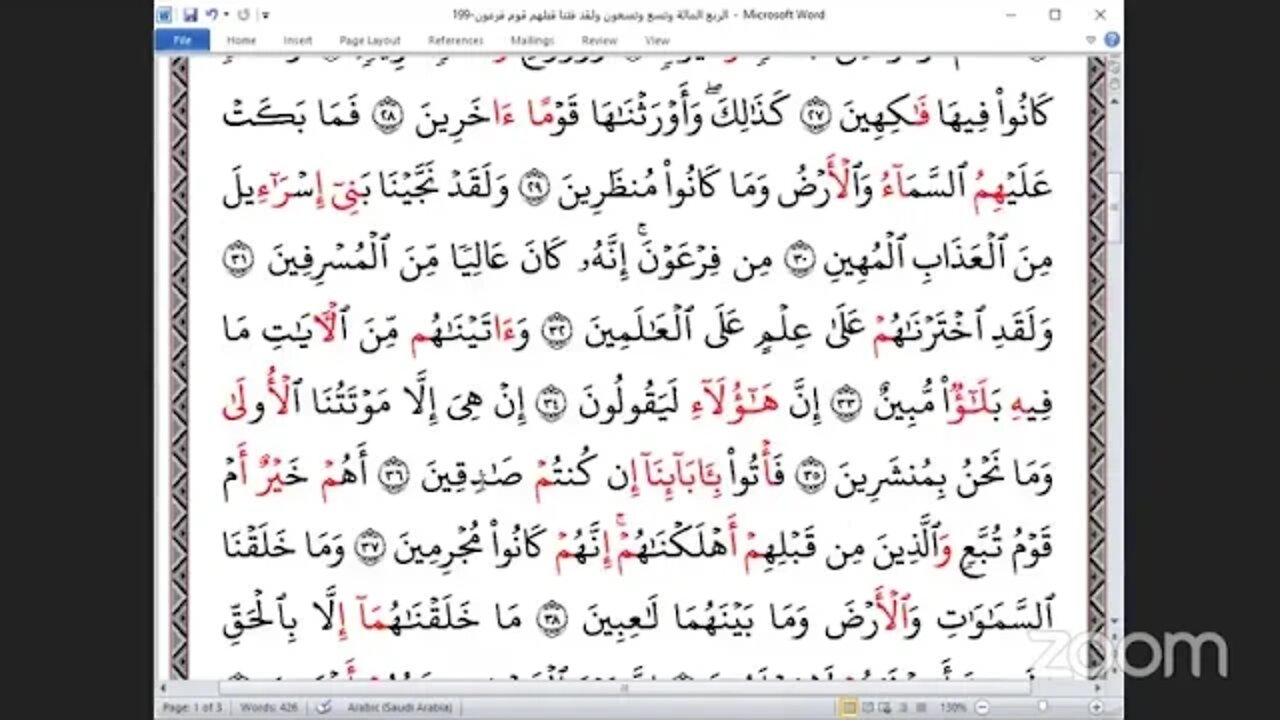 الربع المائة وتسع وتسعون ولقد فتنا قبلهم قوم فرعون-199 - Microsoft Word
File Home Insert Page Layout References Mailings Review View
كَانُواْ فِيهَا فَٰكِهِينَ ٢٧ كَذَٰلِكَۖ وَأَوۡرَثۡنَٰهَا قَوۡمًا ءَاخَرِينَ ٢٨ فَمَا بَكَتۡ
عَلَيۡهِمُ ٱلسَّمَآءُ وَٱلۡأَرۡضُ وَمَا كَانُواْ مُنظَرِينَ ٢٩ وَلَقَدۡ نَجَّيۡنَا بَنِيٓ إِسۡرَٰٓءِيلَ
مِنَ ٱلۡعَذَابِ ٱلۡمُهِينِ ٣٠ مِن فِرۡعَوۡنَۚ إِنَّهُۥ كَانَ عَالِيٗا مِّنَ ٱلۡمُسۡرِفِينَ ٣١
وَلَقَدِ ٱخۡتَرۡنَٰهُمۡ عَلَىٰ عِلۡمٍ عَلَى ٱلۡعَٰلَمِينَ ٣٢ وَءَاتَيۡنَٰهُم مِّنَ ٱلۡأٓيَٰتِ مَا
فِيهِ بَلَٰٓؤٞاْ مُّبِينٌ ٣٣ إِنَّ هَٰٓؤُلَآءِ لَيَقُولُونَ ٣٤ إِنۡ هِيَ إِلَّا مَوۡتَتُنَا ٱلۡأُولَىٰ
وَمَا نَحۡنُ بِمُنشَرِينَ ٣٥ فَأۡتُواْ بِـَٔابَآئِنَآ إِن كُنتُمۡ صَٰدِقِينَ ٣٦ أَهُمۡ خَيۡرٌ أَمۡ
قَوۡمُ تُبَّعٖ وَٱلَّذِينَ مِن قَبۡلِهِمۡ أَهۡلَكۡنَٰهُمۡۚ إِنَّهُمۡ كَانُواْ مُجۡرِمِينَ ٣٧ وَمَا خَلَقۡنَا
ٱلسَّمَٰوَٰتِ وَٱلۡأَرۡضَ وَمَا بَيۡنَهُمَا لَٰعِبِينَ ٣٨ مَا خَلَقۡنَٰهُمَآ إِلَّا بِٱلۡحَقِّ
zoom
Page: 1 of 3 Words: 426 Arabic (Saudi Arabia) 130%